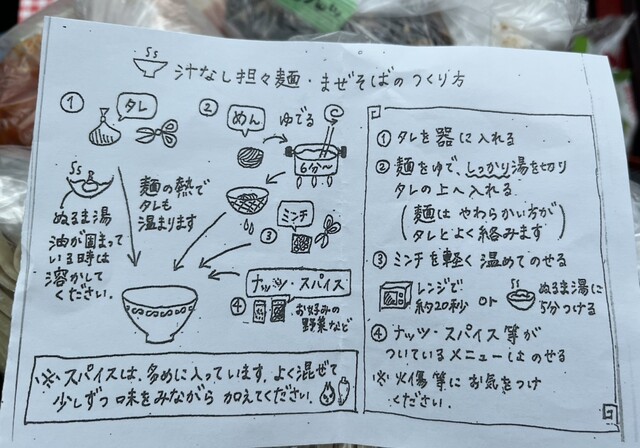 汁なし担々麺・まぜそばのつくり方
①
タレ
ぬるま湯
油が固まって
いる時は
溶かして
ください。
麺の熱で
タレも
温まります
②
めん
ゆでる
6分〜
③
ミンチ
ナッツ・スパイス
④
お好みの
野菜など
※スパイスは、多めに入っています。よく混ぜて
少しずつ味をみながら加えてください。
①タレを器に入れる
②麺をゆで、しっかり湯を切り
タレの上へ入れる
(麺はやわらかい方が
タレとよく絡みます)
③ミンチを軽く温めてのせる
レンジで
約20秒
or
ぬるま湯に
5分つける
④ナッツ・スパイス等が
ついているメニューはのせる
※火傷等にお気をつけ
ください。